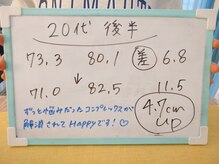 20代 後半
73.3 80.1 差 6.8
↓
71.0 82.5 11.5
ずっと悩みだったコンプレックスが
解消されてHappyです!♡
4.7cm
up